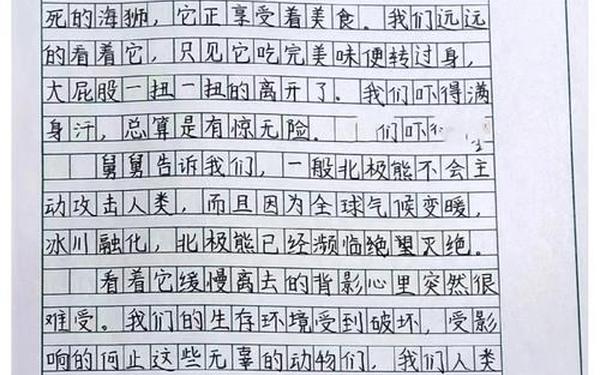 死的海狮，它正享受着美食。我们远远
的看着它，只见它吃完美味便转过身，
大屁股一扭一扭的离开了。我们吓得满
身汗，总算是有惊无险。 们吓
舅舅告诉我们，一般北极熊不会主
动攻击人类，而且因为全球气候变暖，
冰川融化，北极熊已经濒临绝望灭绝。
看着它缓慢离去的背影心里突然很
难受。我们的生存环境受到破坏，受影
响的何止这些无辜的动物们，我们人类